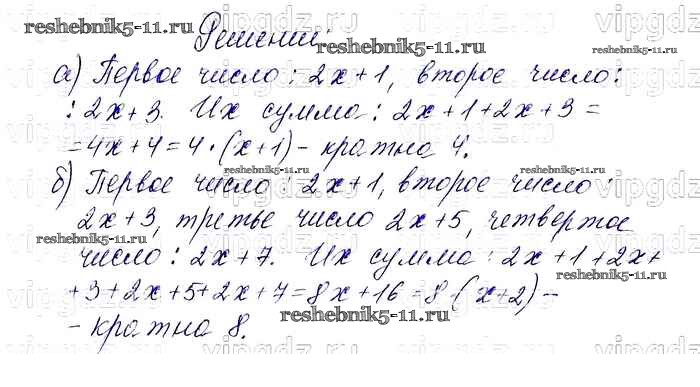 Решений:
а) Первое число: 2x+1, второе число:
: 2x+3. Их сумма: 2x+1+2x+3=
=4x+4=4·(x+1)-кратна 4.
б) Первое число: 2x+1, второе число:
2x+3, третье число 2x+5, четвертое
число: 2x+7. Их сумма: 2x+1+2x+
+3+2x+5+2x+7=8x+16=8(x+2)-
-кратна 8.
reshebnik5-11.ru
reshebnik5-11.ru
reshebnik5-11.ru
reshebnik5-11.ru
reshebnik5-11.ru
reshebnik5-11.ru
reshebnik5-11.ru
vipgdz
vipgdz
vipgdz